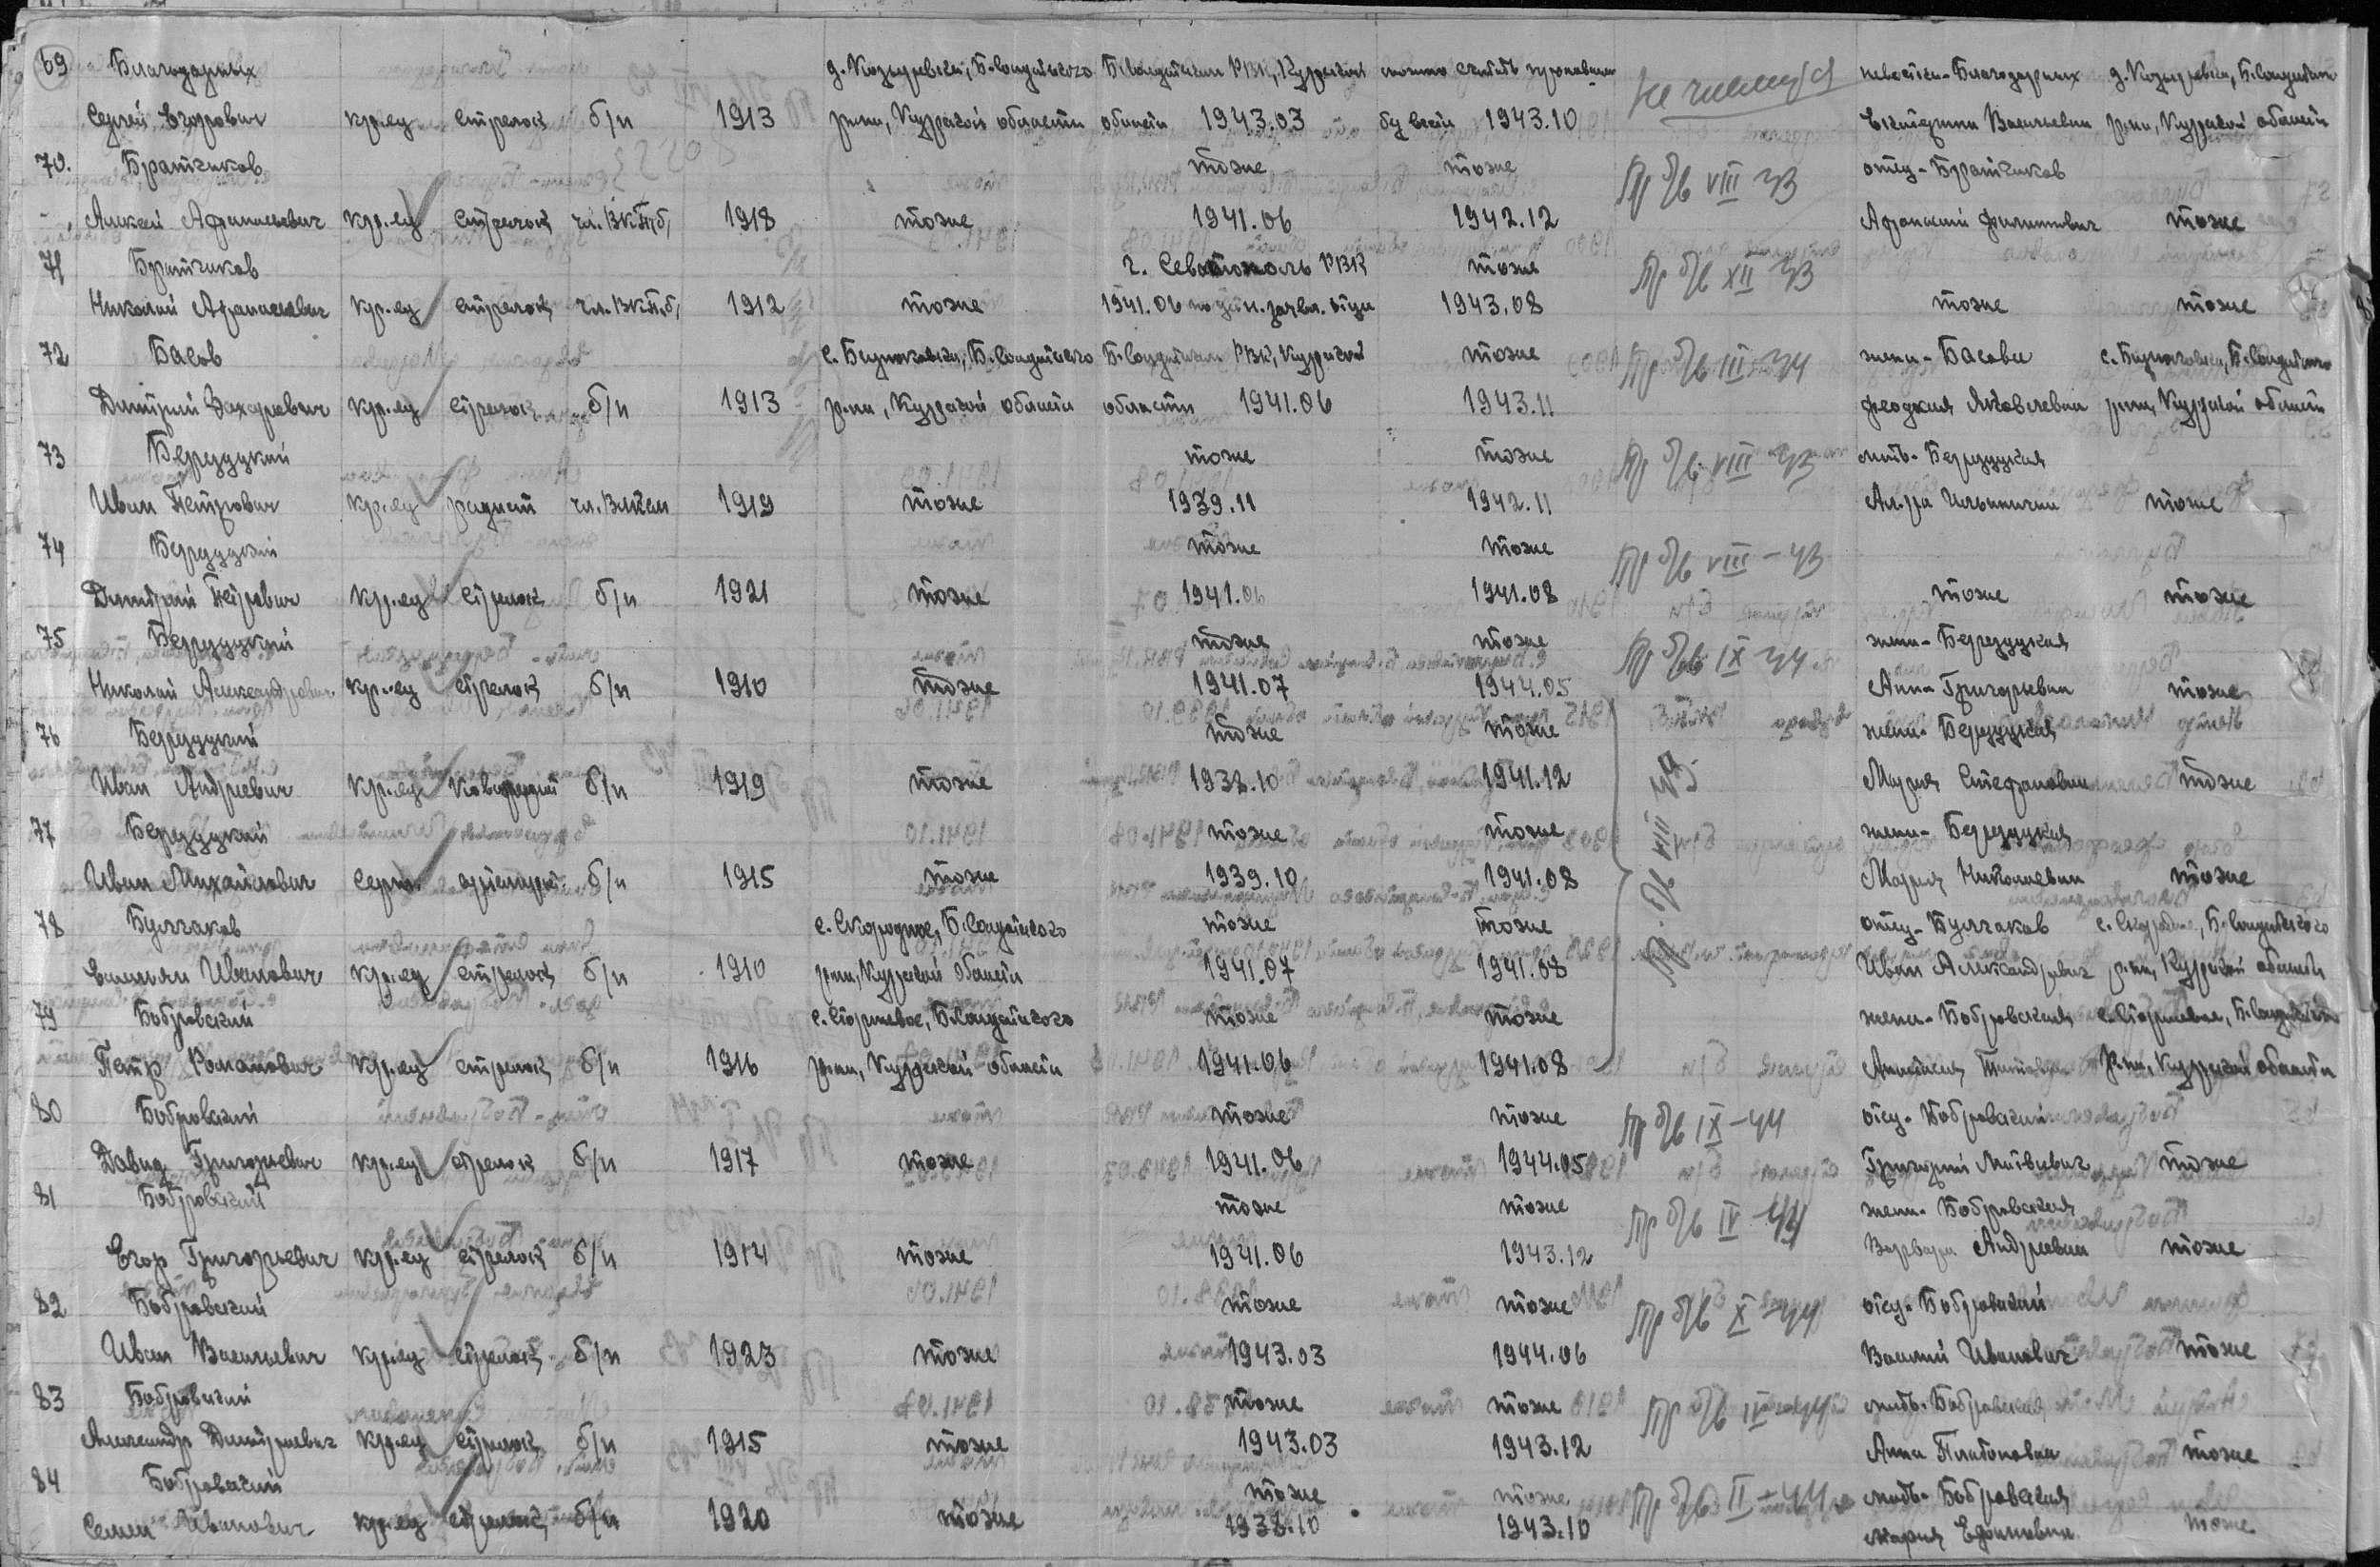 69 Благодарных д. Козыревка, Б.Солдатского Б.Солдатским РВК, Курской можно считать пропавшим не числится невестка - Благодарных д. Козыревка, Б.Солдатского
Сергей Егорович кр-ец стрелок б/п 1913 р-на, Курской области области 1943.03 без вести 1943.10 Екатерина Васильевна р-на, Курской области
70. Братчиков тоже тоже Пр б/в VIII 43 отец - Братчиков
Алексей Афанасьевич кр-ец стрелок чл. ВКП(б) 1918 тоже 1941.06 1942.12 Афанасий Филиппович тоже
71 Братчиков г. Севастополь РВК тоже Пр б/в XII 43
Николай Афанасьевич кр-ец стрелок чл. ВКП(б) 1912 тоже 1941.06 1943.08 тоже тоже
72 Басов с. Бирюковка, Б.Солдатского Б.Солдатским РВК, Курской тоже Пр б/в III 44 жена - Басова с. Бирюковка, Б.Солдатского
Дмитрий Захарович кр-ец стрелок б/п 1913 р-на, Курской области области 1941.06 1943.11 Феодосия Яковлевна р-на, Курской области
73 Березуцкий тоже тоже Пр б/в VIII 43 мать - Березуцкая
Иван Петрович кр-ец радист чл. ВЛКСМ 1919 тоже 1939.11 1942.11 Ал-ра Ильинична тоже
74 Березуцкий тоже тоже Пр б/в VIII - 43
Дмитрий Петрович кр-ец стрелок б/п 1921 тоже 1941.06 1941.08 тоже тоже
75 Березуцкий тоже тоже Пр б/в IX 44 жена - Березуцкая
Николай Александрович кр-ец стрелок б/п 1910 тоже 1941.07 1944.05 Анна Григорьевна тоже
76 Березуцкий тоже тоже Пр. б/в VIII 43 жена - Березуцкая
Иван Андреевич кр-ец б/п 1919 тоже 1938.10 1941.12 Мария Стефановна тоже
77 Березуцкий тоже тоже жена - Березуцкая
Иван Михайлович серж. б/п 1915 тоже 1939.10 1941.08 Мария Николаевна тоже
78 Булгаков с. Скородное, Б.Солдатского тоже тоже отец - Булгаков с. Скородное, Б.Солдатского
Емельян Иванович кр-ец стрелок б/п 1910 р-на, Курской области 1941.07 1941.08 Иван Александрович р-на, Курской области
79 Бобровский с. Сторожевое, Б.Солдатского тоже тоже жена - Бобровская с. Сторожевое, Б.Солдатского
Петр Романович кр-ец стрелок б/п 1916 р-на, Курской области 1941.06 1941.08 Анастасия р-на, Курской области
80 Бобровский тоже тоже Пр б/в IX - 44 отец - Бобровский
Давид Григорьевич кр-ец стрелок б/п 1917 тоже 1941.06 1944.05 Григорий Матвеевич тоже
81 Бобровский тоже тоже Пр б/в IV - 44 жена - Бобровская
Егор Григорьевич кр-ец стрелок б/п 1914 тоже 1941.06 1943.12 Варвара Андреевна тоже
82 Бобровский тоже тоже Пр б/в X - 44 отец - Бобровский
Иван Васильевич кр-ец стрелок б/п 1923 тоже 1943.03 1944.06 Василий Иванович тоже
83 Бобровский тоже тоже Пр б/в мать - Бобровская
Александр Дмитриевич кр-ец стрелок б/п 1915 тоже 1943.03 1943.12 Анна Платоновна тоже
84 Бобровский тоже тоже Пр б/в II - 44 мать - Бобровская
Семен Иванович кр-ец стрелок б/п 1920 тоже 1938.10 1943.10 Мария тоже